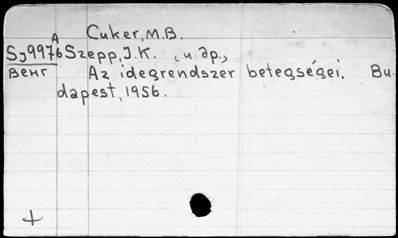 Cuker, M.B.
А
Sy9976 Szepp, J.K. (и др.,
Венг Az idegrendszer betegségei. Bu
dapest, 1956.